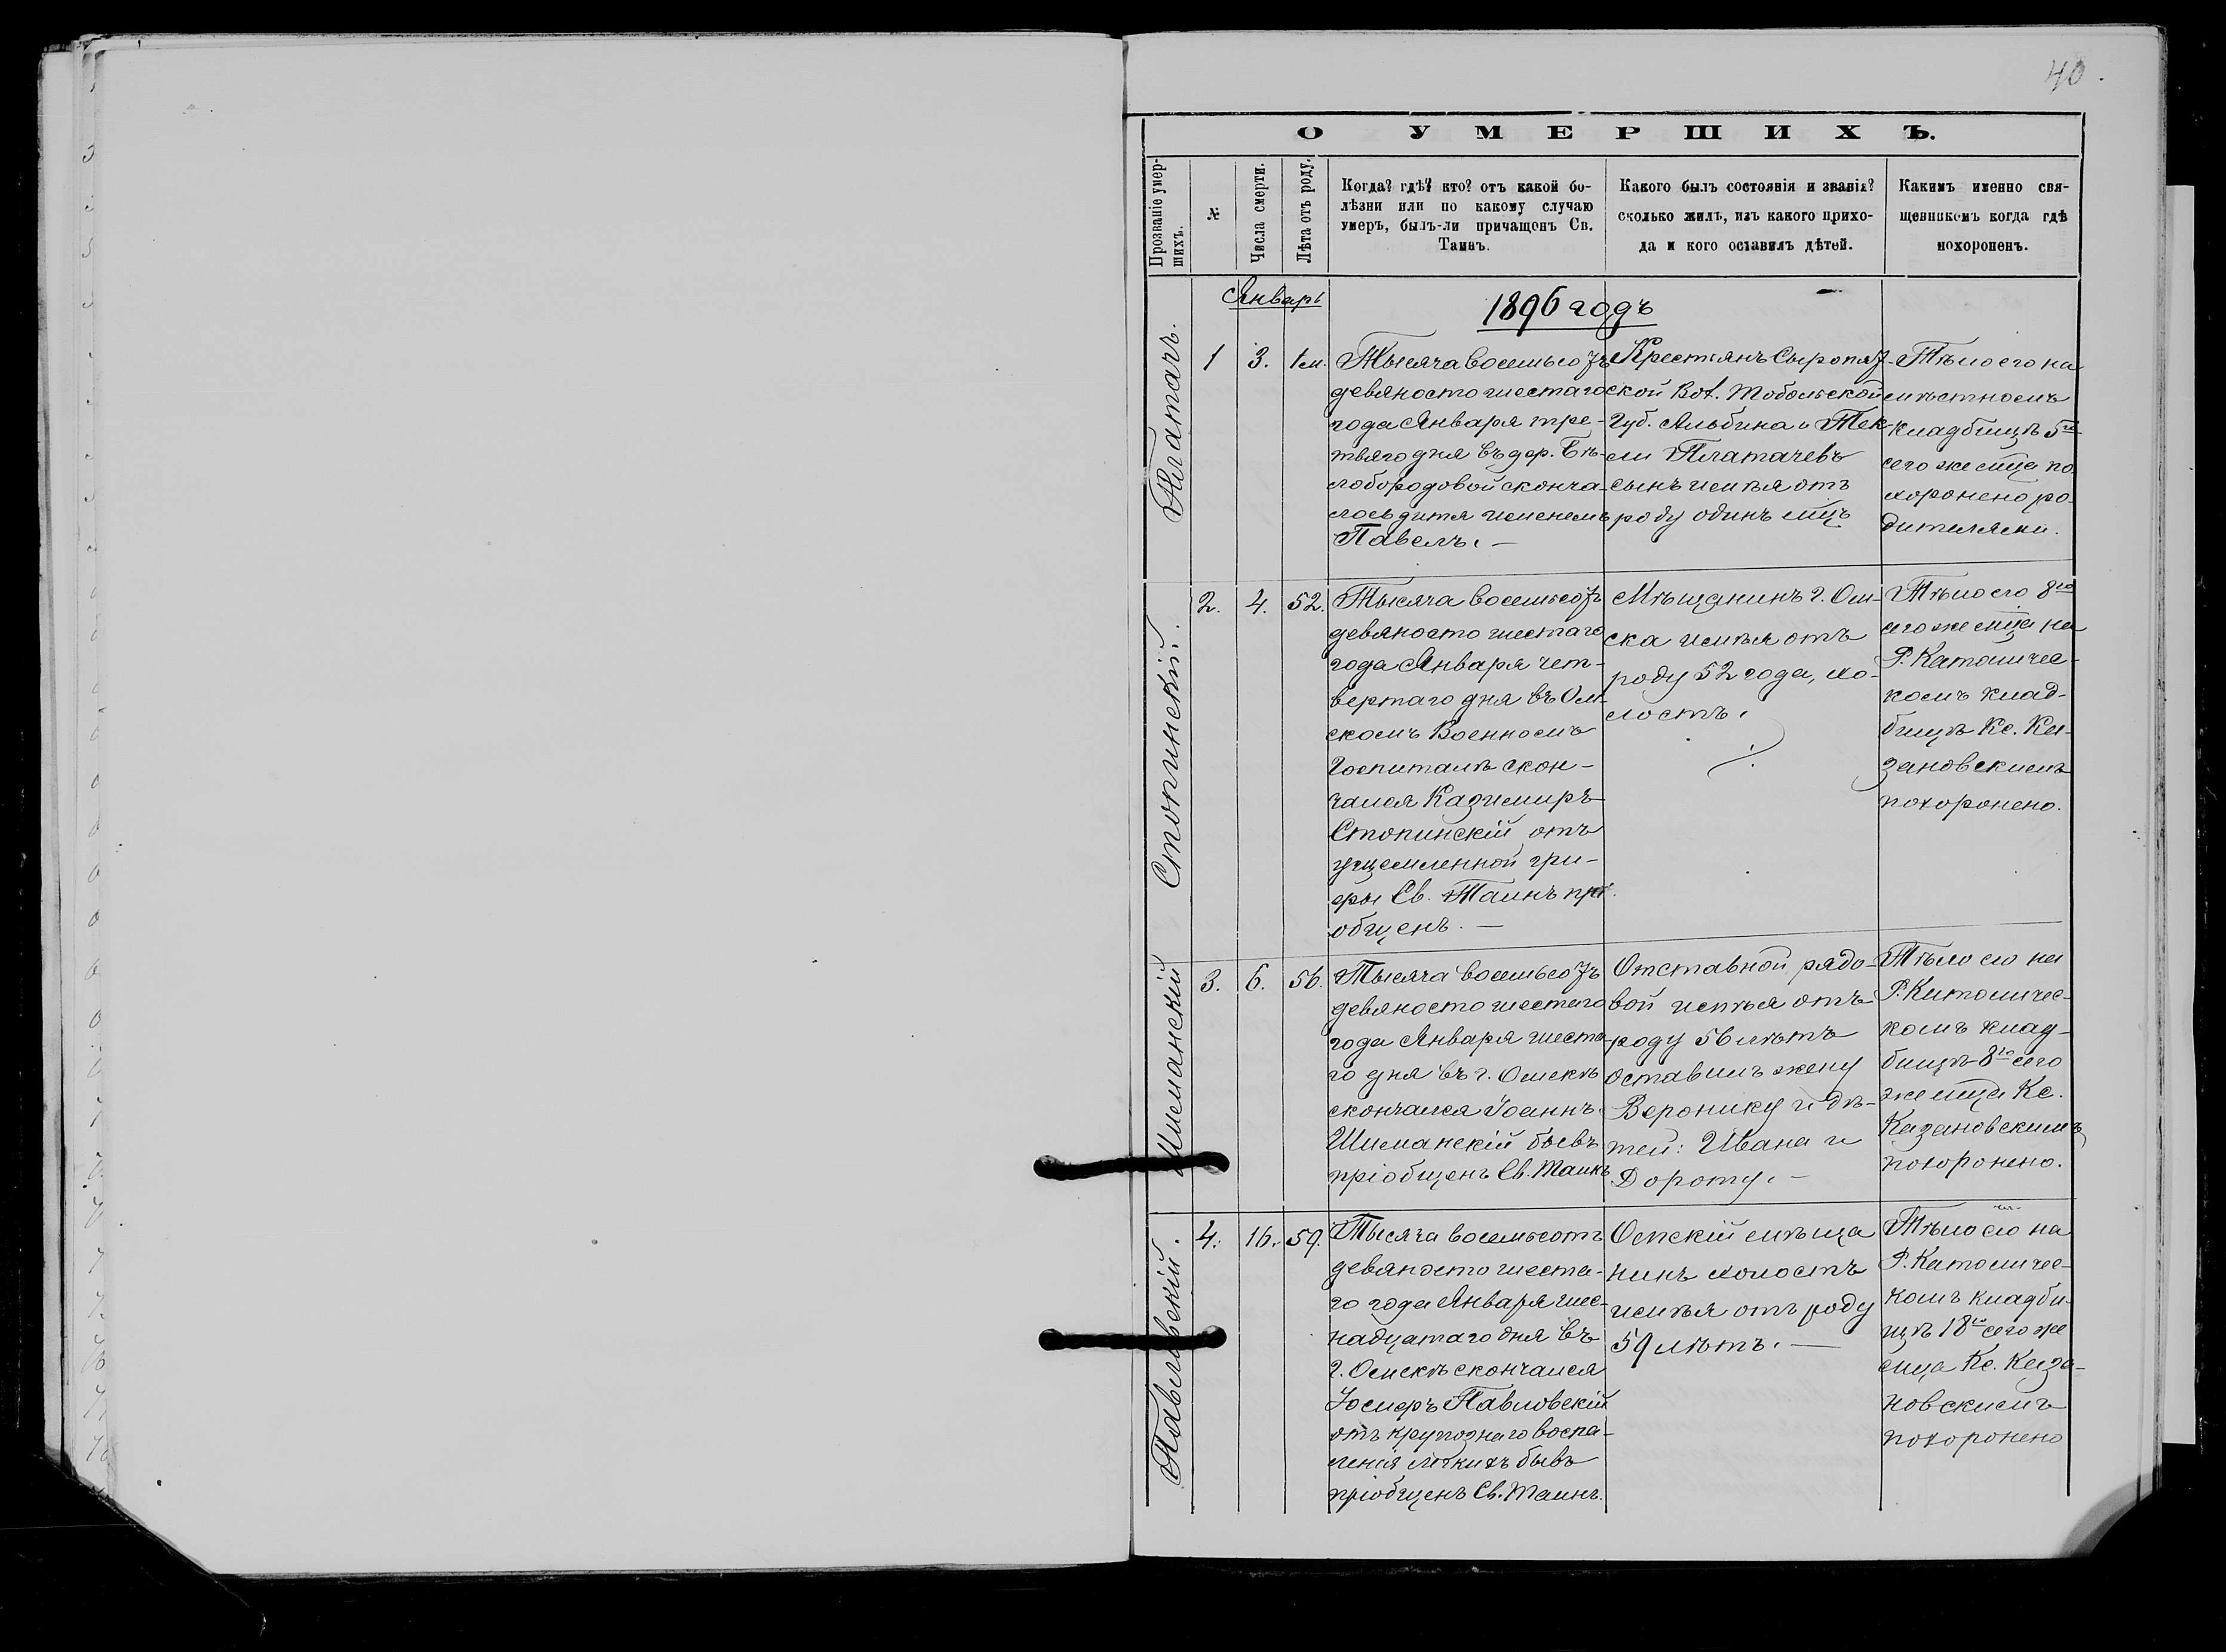 40.
О УМЕРШИХЪ.
Прозваніе умер-
шихъ.
№
Числа смерти.
Лѣта отъ роду.
Когда? гдѣ? кто? отъ какой бо-
лѣзни или по какому случаю
умеръ, былъ-ли причащенъ Св.
Таинъ.
Какого былъ состоянія и званія?
сколько жилъ, изъ какого прихо-
да и кого оставилъ дѣтей.
Какимъ именно свя-
щенникомъ когда гдѣ
похороненъ.
Январь
1896 годъ
Платачъ.
1
3.
1 м.
Тысяча восемьсотъ
девяносто шестаго
года Января тре-
тьяго дня въ дер. Бѣ-
лобородовой сконча-
лось дитя именемъ
Павелъ. —
Крестьянъ Сыропят-
ской Вол. Тобольской
Губ. Альбина и Тек-
ли Платачевъ
сынъ имѣя отъ
роду одинъ мцъ
Тѣло его на
мѣстномъ
кладбищѣ 5го
сего же мца по
хоронено ро-
дителями.
Стопинскій.
2.
4.
52.
Тысяча восемьсотъ
девяносто шестаго
года Января чет-
вертаго дня въ Ом-
скомъ Военномъ
Госпиталѣ скон-
чался Казимиръ
Стопинскій отъ
ущемленной гры-
жи Св. Таинъ прі-
общенъ. —
Мѣщанинъ г. Ом-
ска имѣя отъ
роду 52 года, хо-
лостъ.
Тѣло его 8го
сего же мца на
Р. Католичес-
комъ клад-
бищѣ Кс. Ка-
зановскимъ
похоронено.
Шиманскій
3.
6.
56.
Тысяча восемьсотъ
девяносто шестаго
года Января шеста-
го дня въ г. Омскѣ
скончался Іоаннъ
Шиманскій бывъ
пріобщенъ Св. Таинъ
Отставной рядо-
вой имѣя отъ
роду 56 лѣтъ
оставилъ жену
Веронику и дѣ-
тей: Ивана и
Дороту. —
Тѣло его на
Р. Католичес-
комъ клад-
бищѣ 8го сего
же мца Кс.
Казановскимъ
похоронено.
Павловскій.
4.
16.
59.
Тысяча восемьсотъ
девяносто шеста-
го года Января шес-
надцатаго дня въ
г. Омскѣ скончался
Павловскій
отъ крупознаго воспа-
ленія легкихъ бывъ
пріобщенъ Св. Таинъ.
Омскій мѣща
нинъ холостъ
имѣя отъ роду
59 лѣтъ. —
Тѣло его на
Р. Католичес-
комъ кладби-
щѣ 18го сего же
мца Кс. Каза-
новскимъ
похоронено